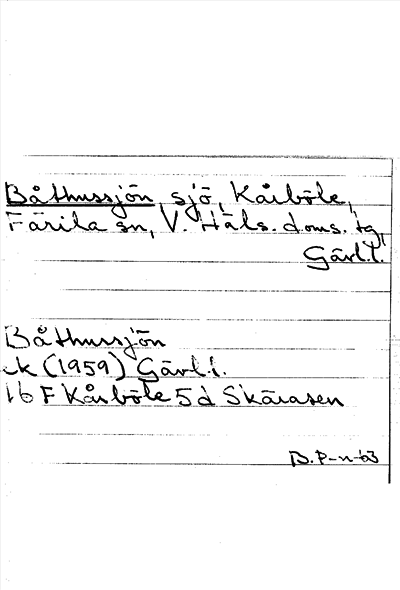 Båthussjön, sjö, Kårböle,
Färila sn, V. Häls. doms. tg,
Gävl.l.
Båthussjön
ek (1959) Gävl.l.
16 F Kårböle 5d Skåråsen
B. P-n -63